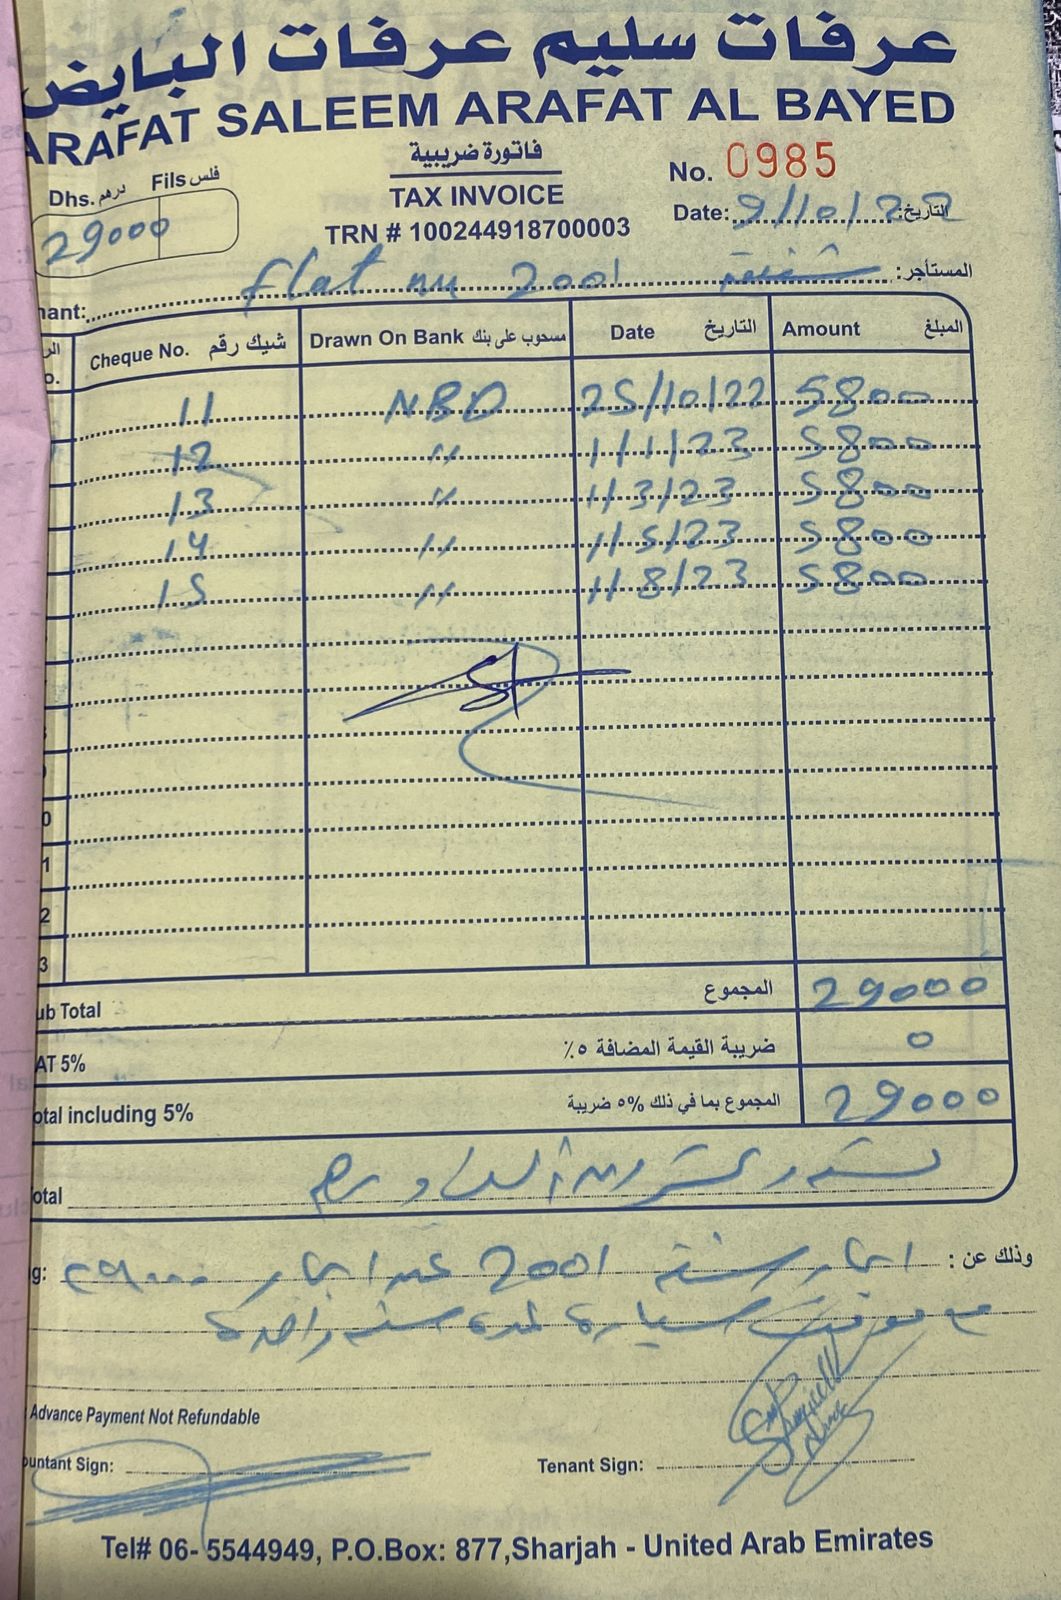 عرفات سليم عرفات البايض
ARAFAT SALEEM ARAFAT AL BAYED
فاتورة ضريبية
TAX INVOICE
TRN # 100244918700003
No. 0985
Dhs. درهم Fils فلس
29000
Date: 9/10/22 التاريخ:
flat nu 2001 المستأجر:
Cheque No. شيك رقم Drawn On Bank مسحوب على بنك Date التاريخ Amount المبلغ
11 NBD 25/10/22 5800
12 " 1/1/23 5800
13 " 1/3/23 5800
14 " 1/5/23 5800
15 " 1/8/23 5800
Total المجموع 29000
5% ضريبة القيمة المضافة ٥٪ 0
including 5% المجموع بما في ذلك 5% ضريبة 29000
تسعة وعشرون ألف درهم
وذلك عن : ايجار شقة 2001 عدد ايجار ٢٩٠٠٠
مع موقف سيارة لمدة سنة واحدة
Advance Payment Not Refundable
Sign:
Tenant Sign:
Tel# 06- 5544949, P.O.Box: 877,Sharjah - United Arab Emirates